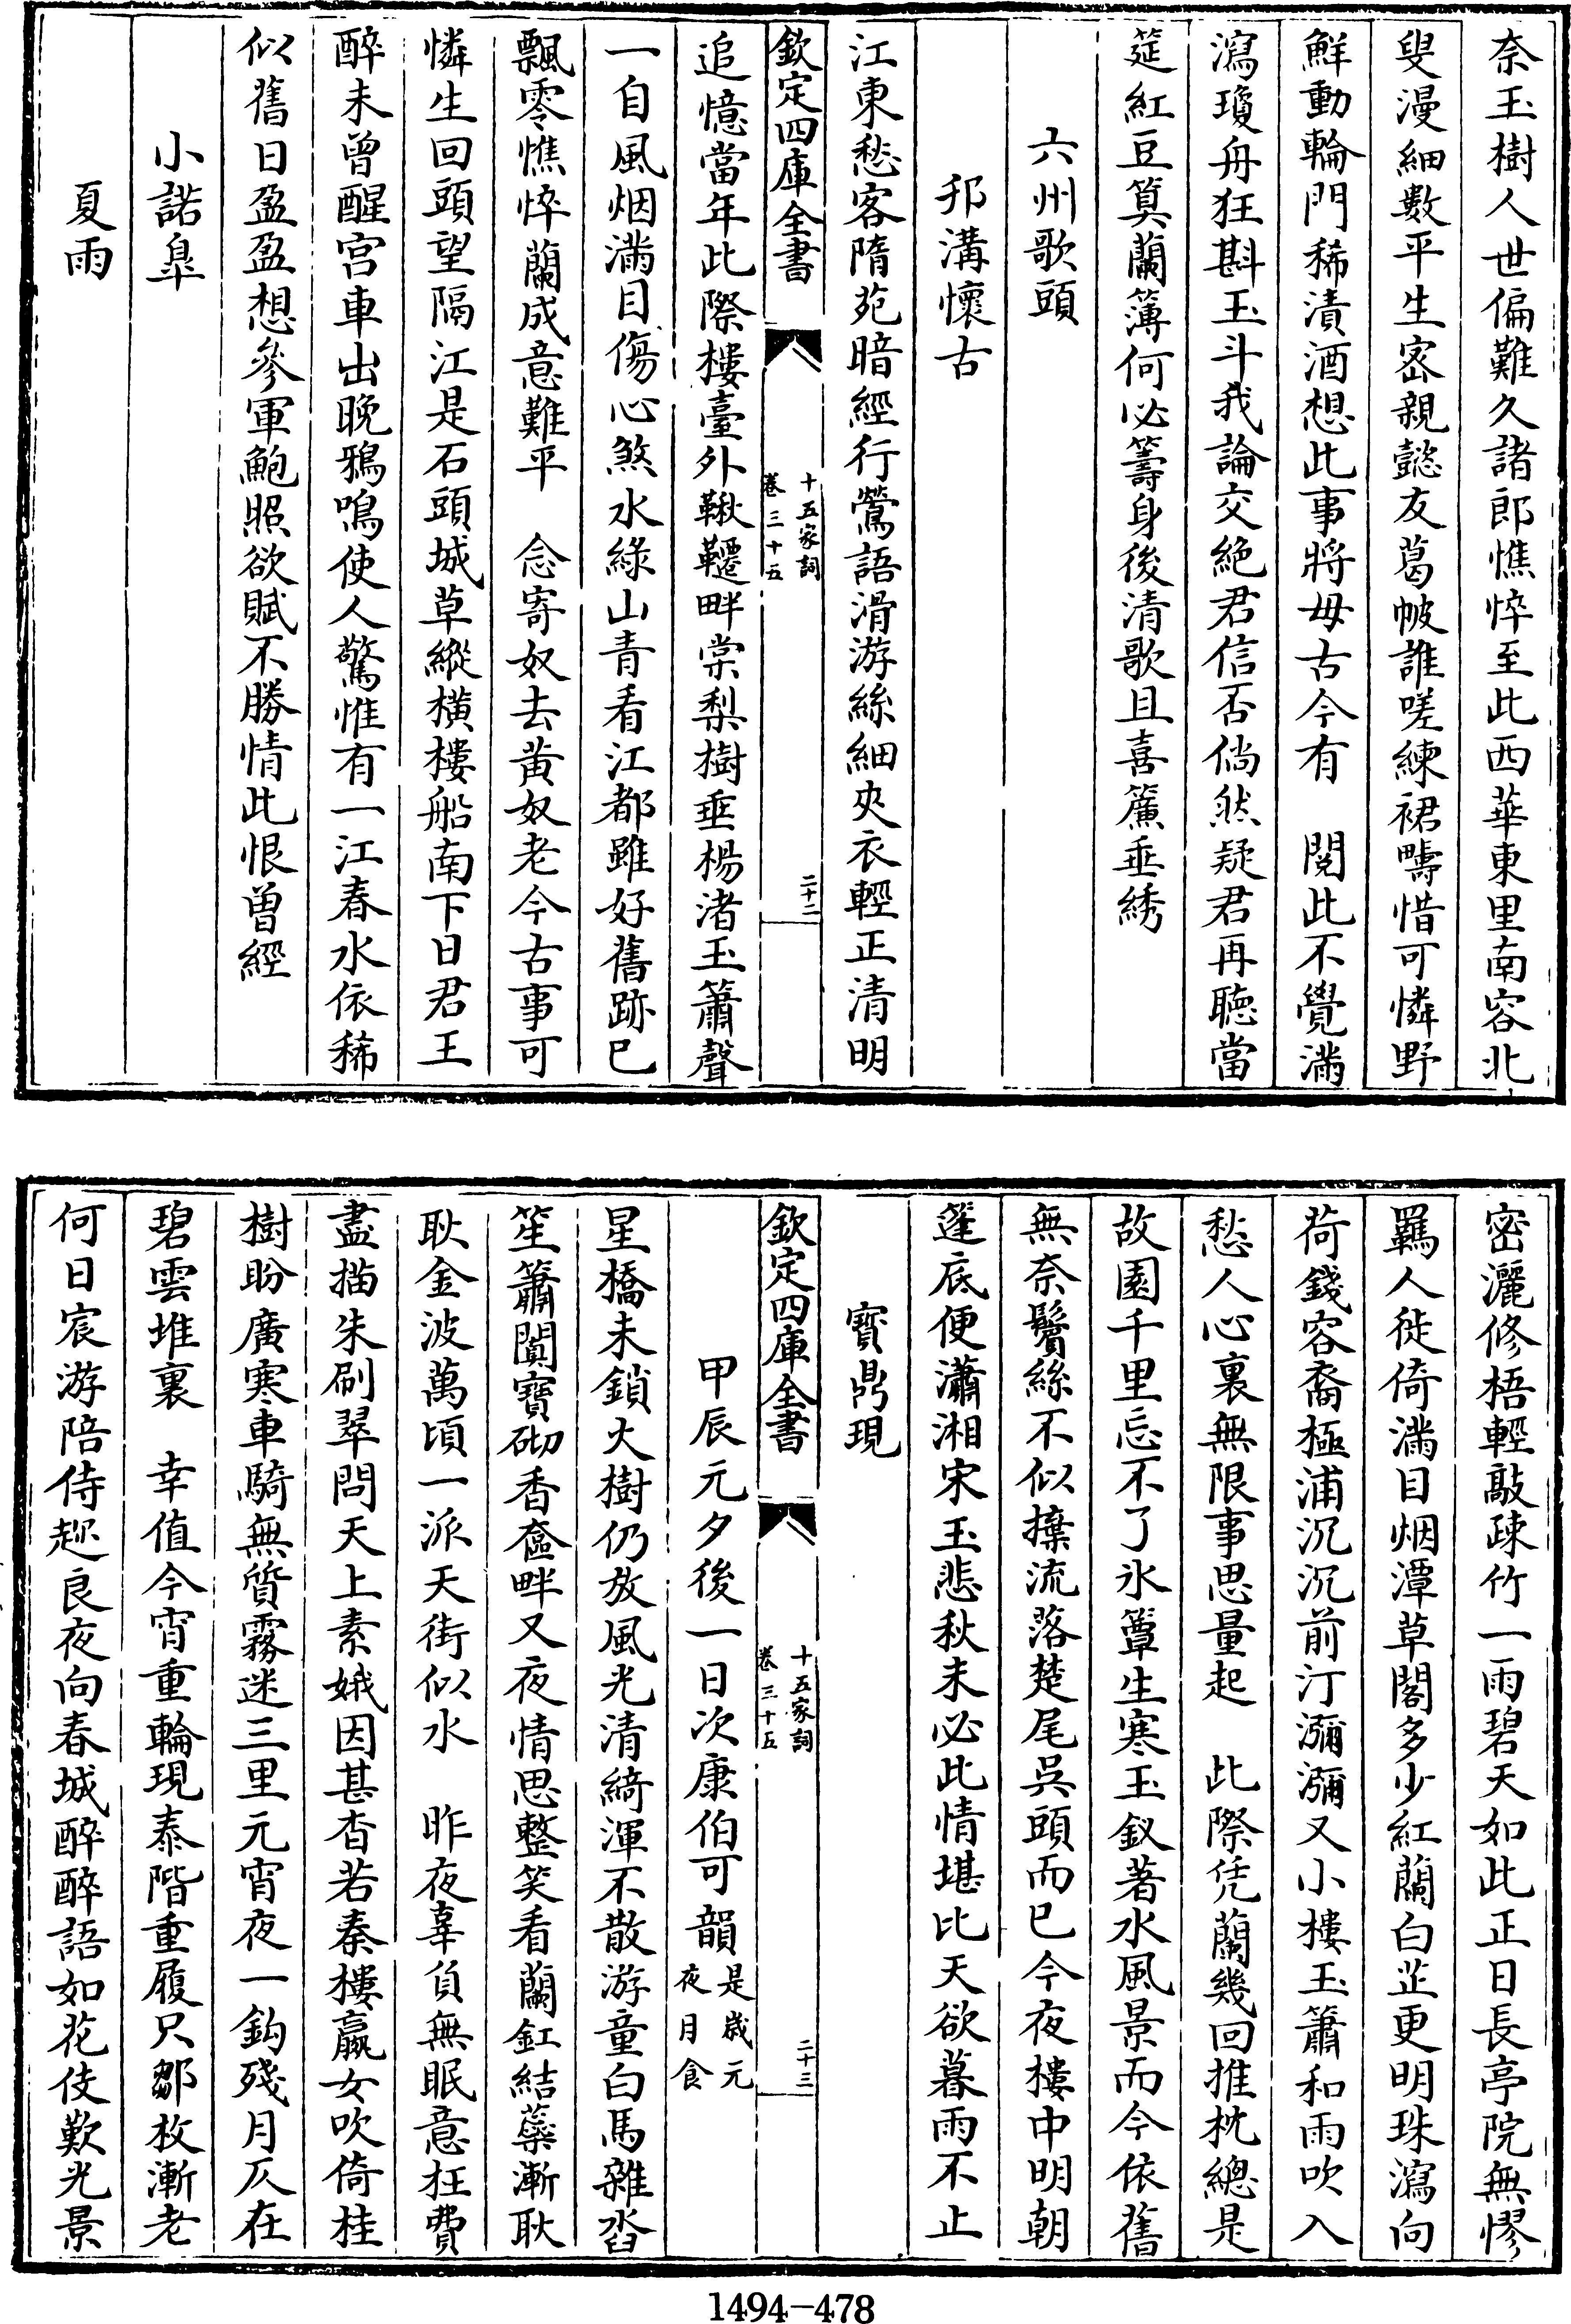 奈玉樹人世偏難久諸郎憔悴至此西華東里南容北
叟漫細數平生密親懿友葛帔誰嗟練裙疇惜可憐野
鮮動輪門稀漬酒想此事將毋古今有　閱此不覺滿
瀉瓊舟狂斟玉斗我論交絶君信否倘然疑君再聽當
筵紅豆算蘭簿何必籌身後清歌且喜簾垂綉
六州歌頭
邗溝懷古
江東愁客隋苑暗經行鶯語滑游絲細夾衣輕正清明
欽定四庫全書
十五家詞
卷三十五
二十二
追憶當年此際樓臺外鞦韆畔棠梨樹垂楊渚玉簫聲
一自風烟滿目傷心煞水緑山青看江都雖好舊跡已
飄零憔悴蘭成意難平　念寄奴去黄奴老今古事可
憐生回頭望隔江是石頭城草縱横樓船南下日君王
醉未曾醒宫車出晚鴉鳴使人驚惟有一江春水依稀
似舊日盈盈想參軍鮑照欲賦不勝情此恨曾經
小諾臯
夏雨
密灑修梧輕敲疎竹一雨碧天如此正日長亭院無憀
羈人徙倚滿目烟潭草閣多少紅蘭白芷更明珠瀉向
荷錢容裔極浦沉沉前汀瀰瀰又小樓玉簫和雨吹入
愁人心裏無限事思量起　此際凭蘭幾回推枕總是
故園千里忘不了氷簟生寒玉釵著水風景而今依舊
無奈鬢絲不似攓流落楚尾吳頭而已今夜樓中明朝
蓬底便瀟湘宋玉悲秋未必此情堪比天欲暮雨不止
寶鼎現
欽定四庫全書
十五家詞
卷三十五
二十三
甲辰元夕後一日次康伯可韻是歲元夜月食
星橋未鎖火樹仍放風光清綺渾不散游童白馬雜沓
笙簫闐寶砌香奩畔又夜情思整笑看蘭釭結蘂漸耿
耿金波萬頃一派天街似水　昨夜辜負無眠意枉費
盡描朱刷翠問天上素娥因甚杳若秦樓嬴女吹倚桂
樹盼廣寒車騎無質霧迷三里元宵夜一鈎殘月仄在
碧雲堆裏　幸值今宵重輪現泰階重履只鄒枚漸老
何日宸游陪侍趂良夜向春城醉醉語如花伎歎光景
1494-478